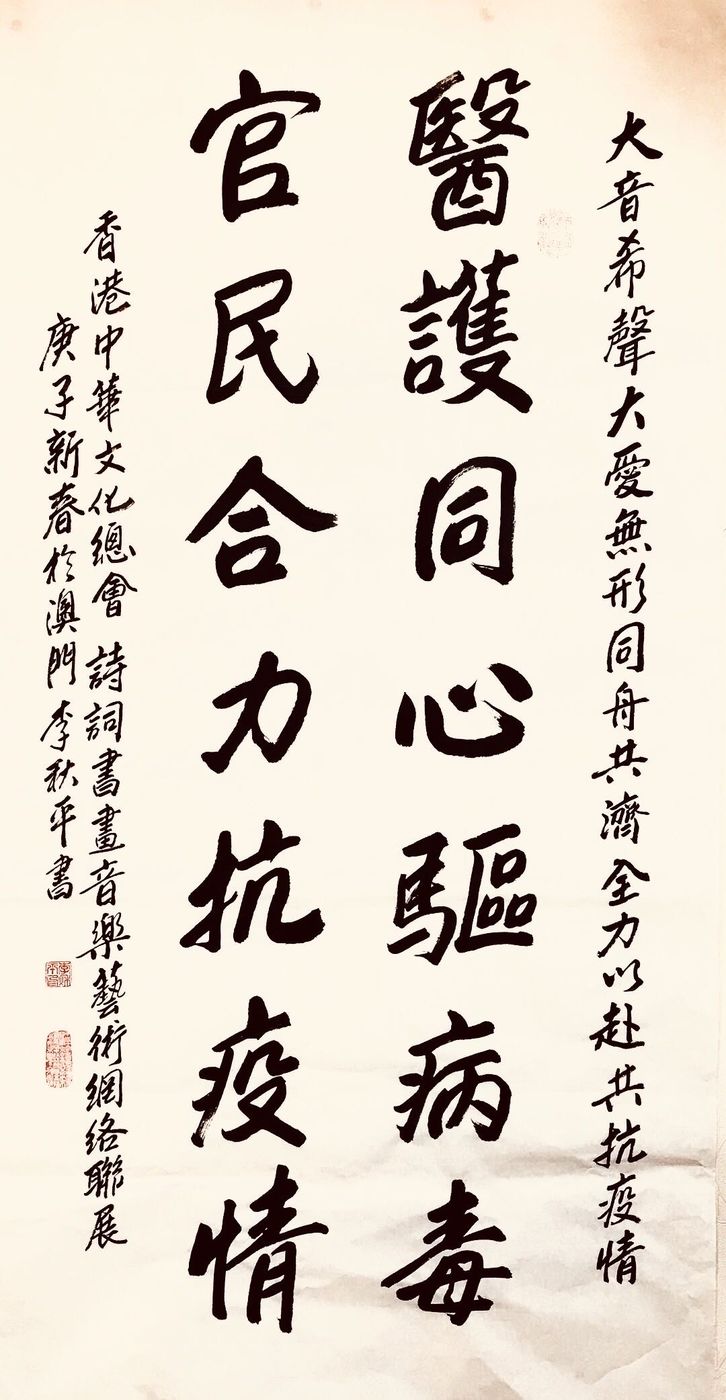 大音希聲大愛無形同舟共濟全力以赴共抗疫情
醫護同心驅病毒
官民合力抗疫情
香港中華文化總會 詩詞書畫音樂藝術網絡聯展
庚子新春於澳門李秋平書